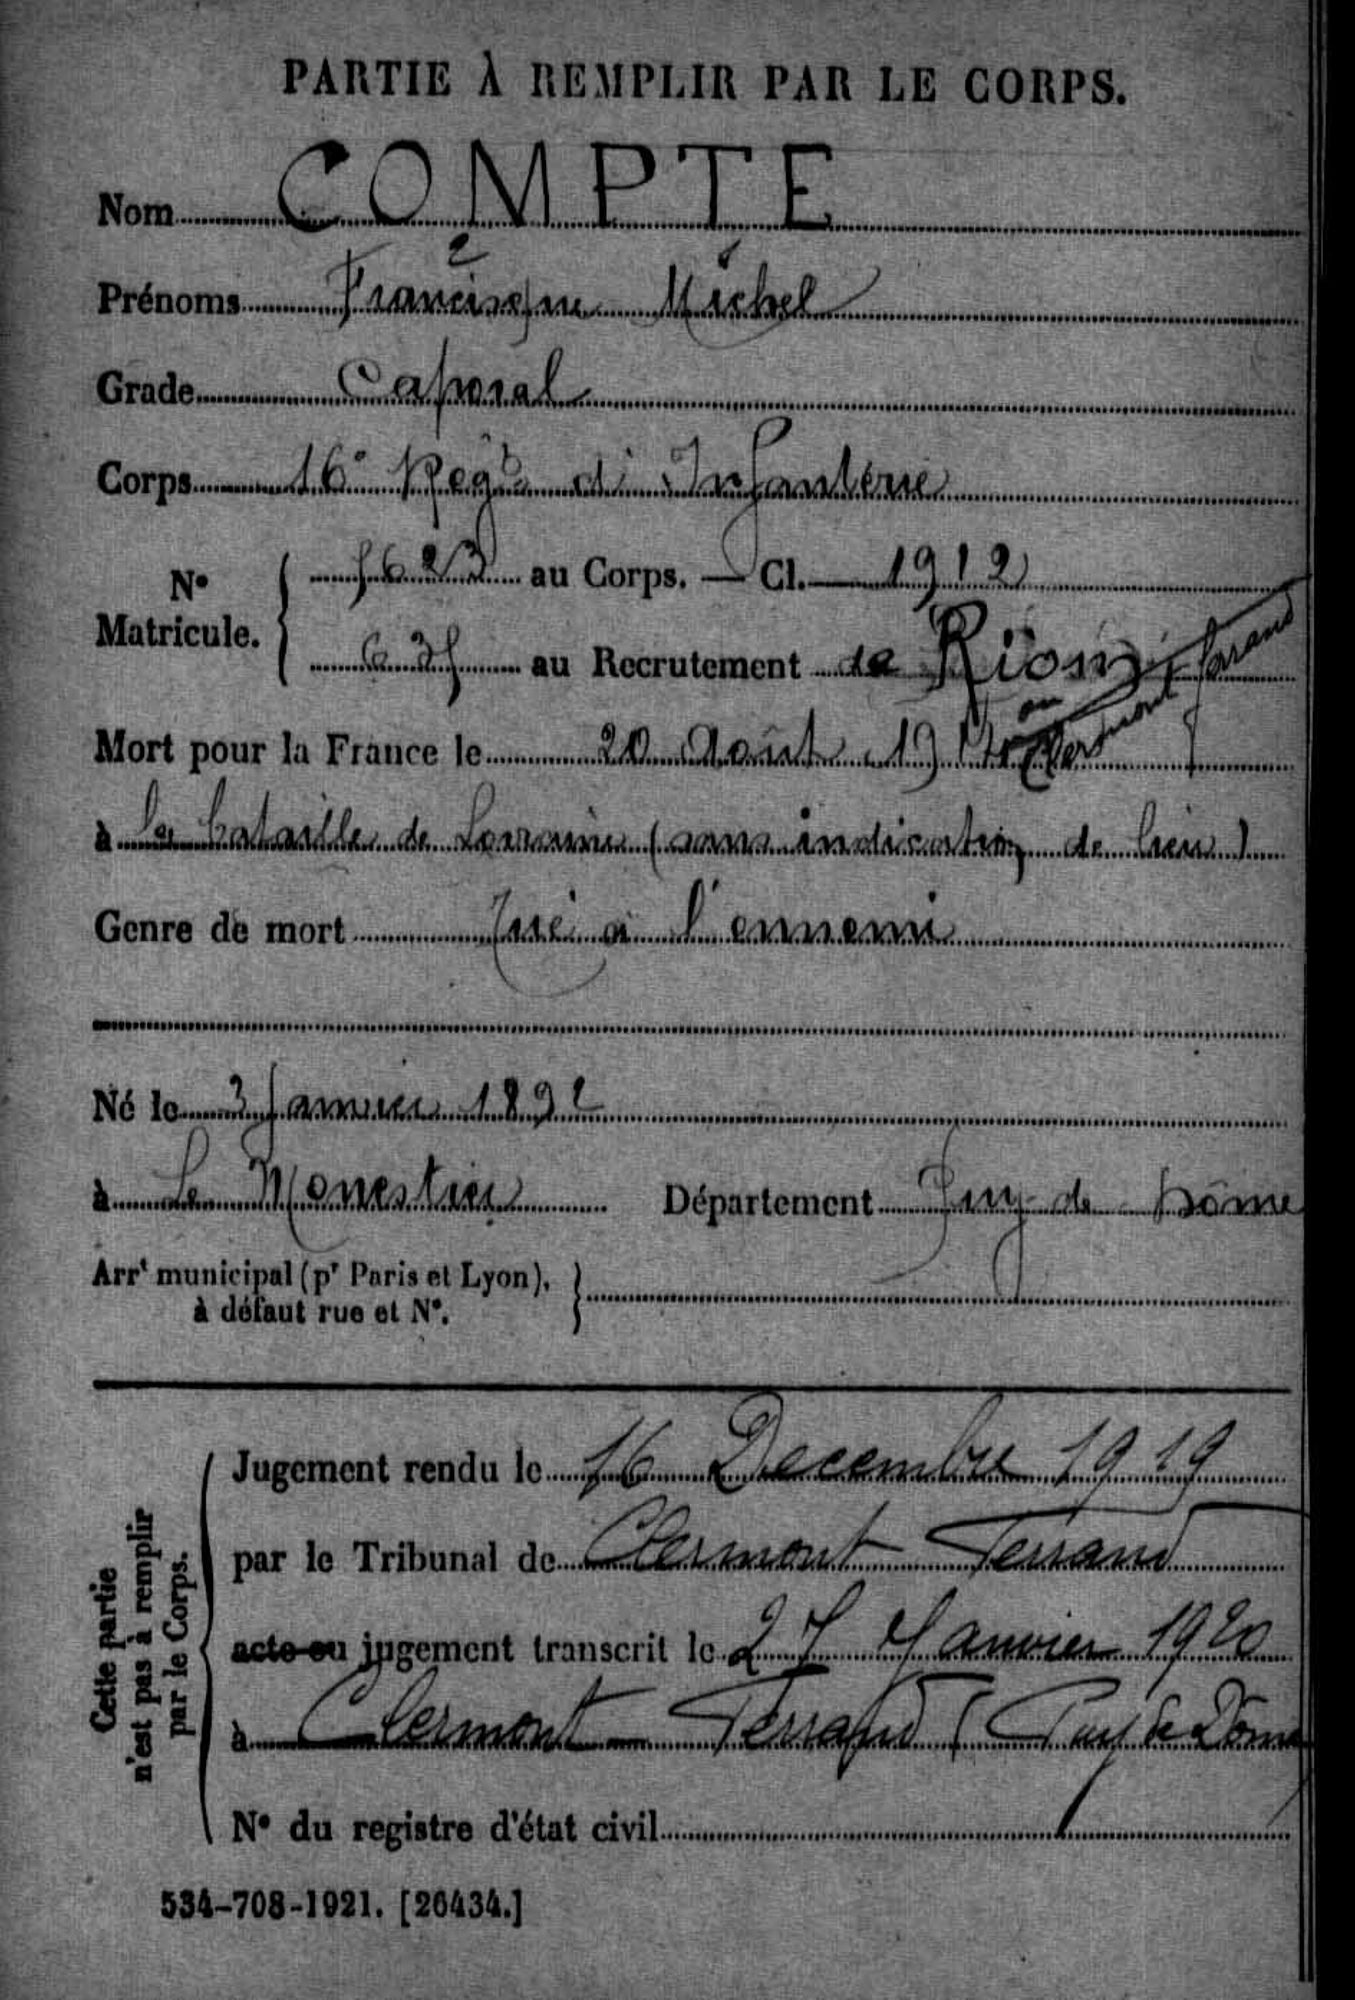 PARTIE À REMPLIR PAR LE CORPS.
Nom COMPTE
2 1
Prénoms Francisque Michel
Grade Caporal
Corps 16e Régt d'Infanterie
N° Matricule. { 5623 au Corps. — Cl. 1912
635 au Recrutement de Riom
ou Clermont ferrand
Mort pour la France le 20 Août 1914
à la bataille de Lorraine (sans indication de lieu)
Genre de mort Tué à l'ennemi
Né le 3 Janvier 1892
à Le Monestier Département Puy-de-Dôme
Arrt municipal (pr Paris et Lyon), à défaut rue et N°.
Cette partie n'est pas à remplir par le Corps.
Jugement rendu le 16 Decembre 1919
par le Tribunal de Clermont Ferrand
acte ou jugement transcrit le 27 Janvier 1920
à Clermont-Ferrand (Puy de Dôme
N° du registre d'état civil
534-708-1921. [26434.]